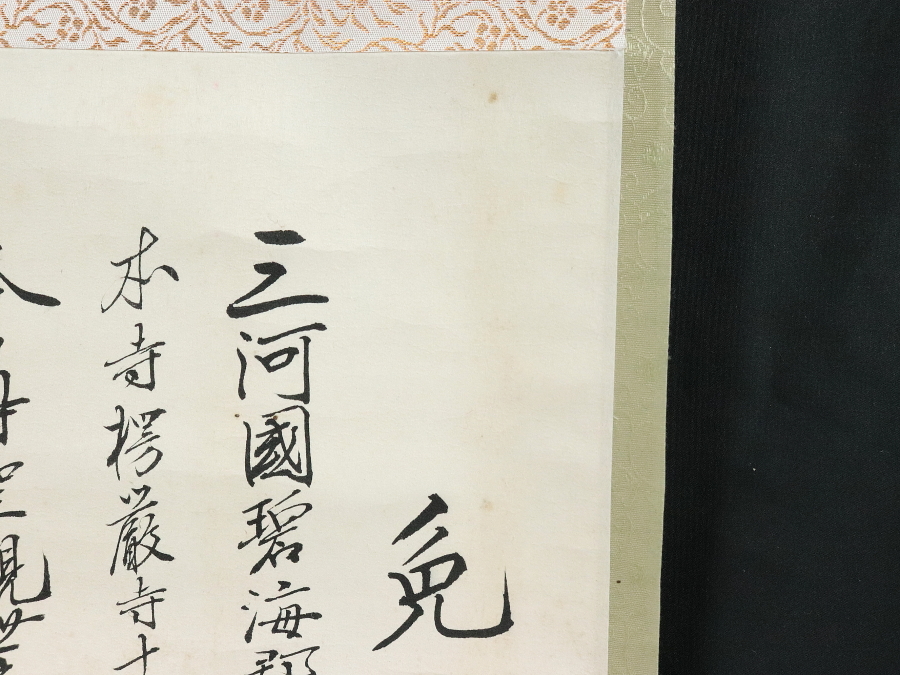 免
三河國碧海郡
本寺楞嚴寺十
聖観世